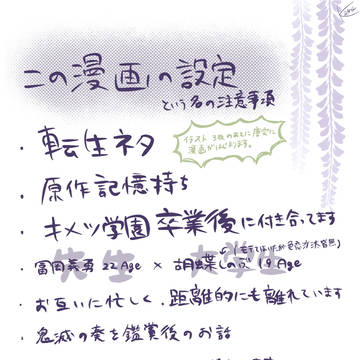 この漫画の設定
という名の注意事項
イラスト3枚のあとに唐突に
漫画がはじまります。
・転生ネタ
・原作記憶持ち
・キメツ学園卒業後に付き合ってます
先生 大学生
・冨岡義勇 22Age × 胡蝶しのぶ 19Age
・お互いに忙しく、距離的にも離れています
・鬼滅の奏を鑑賞後のお話